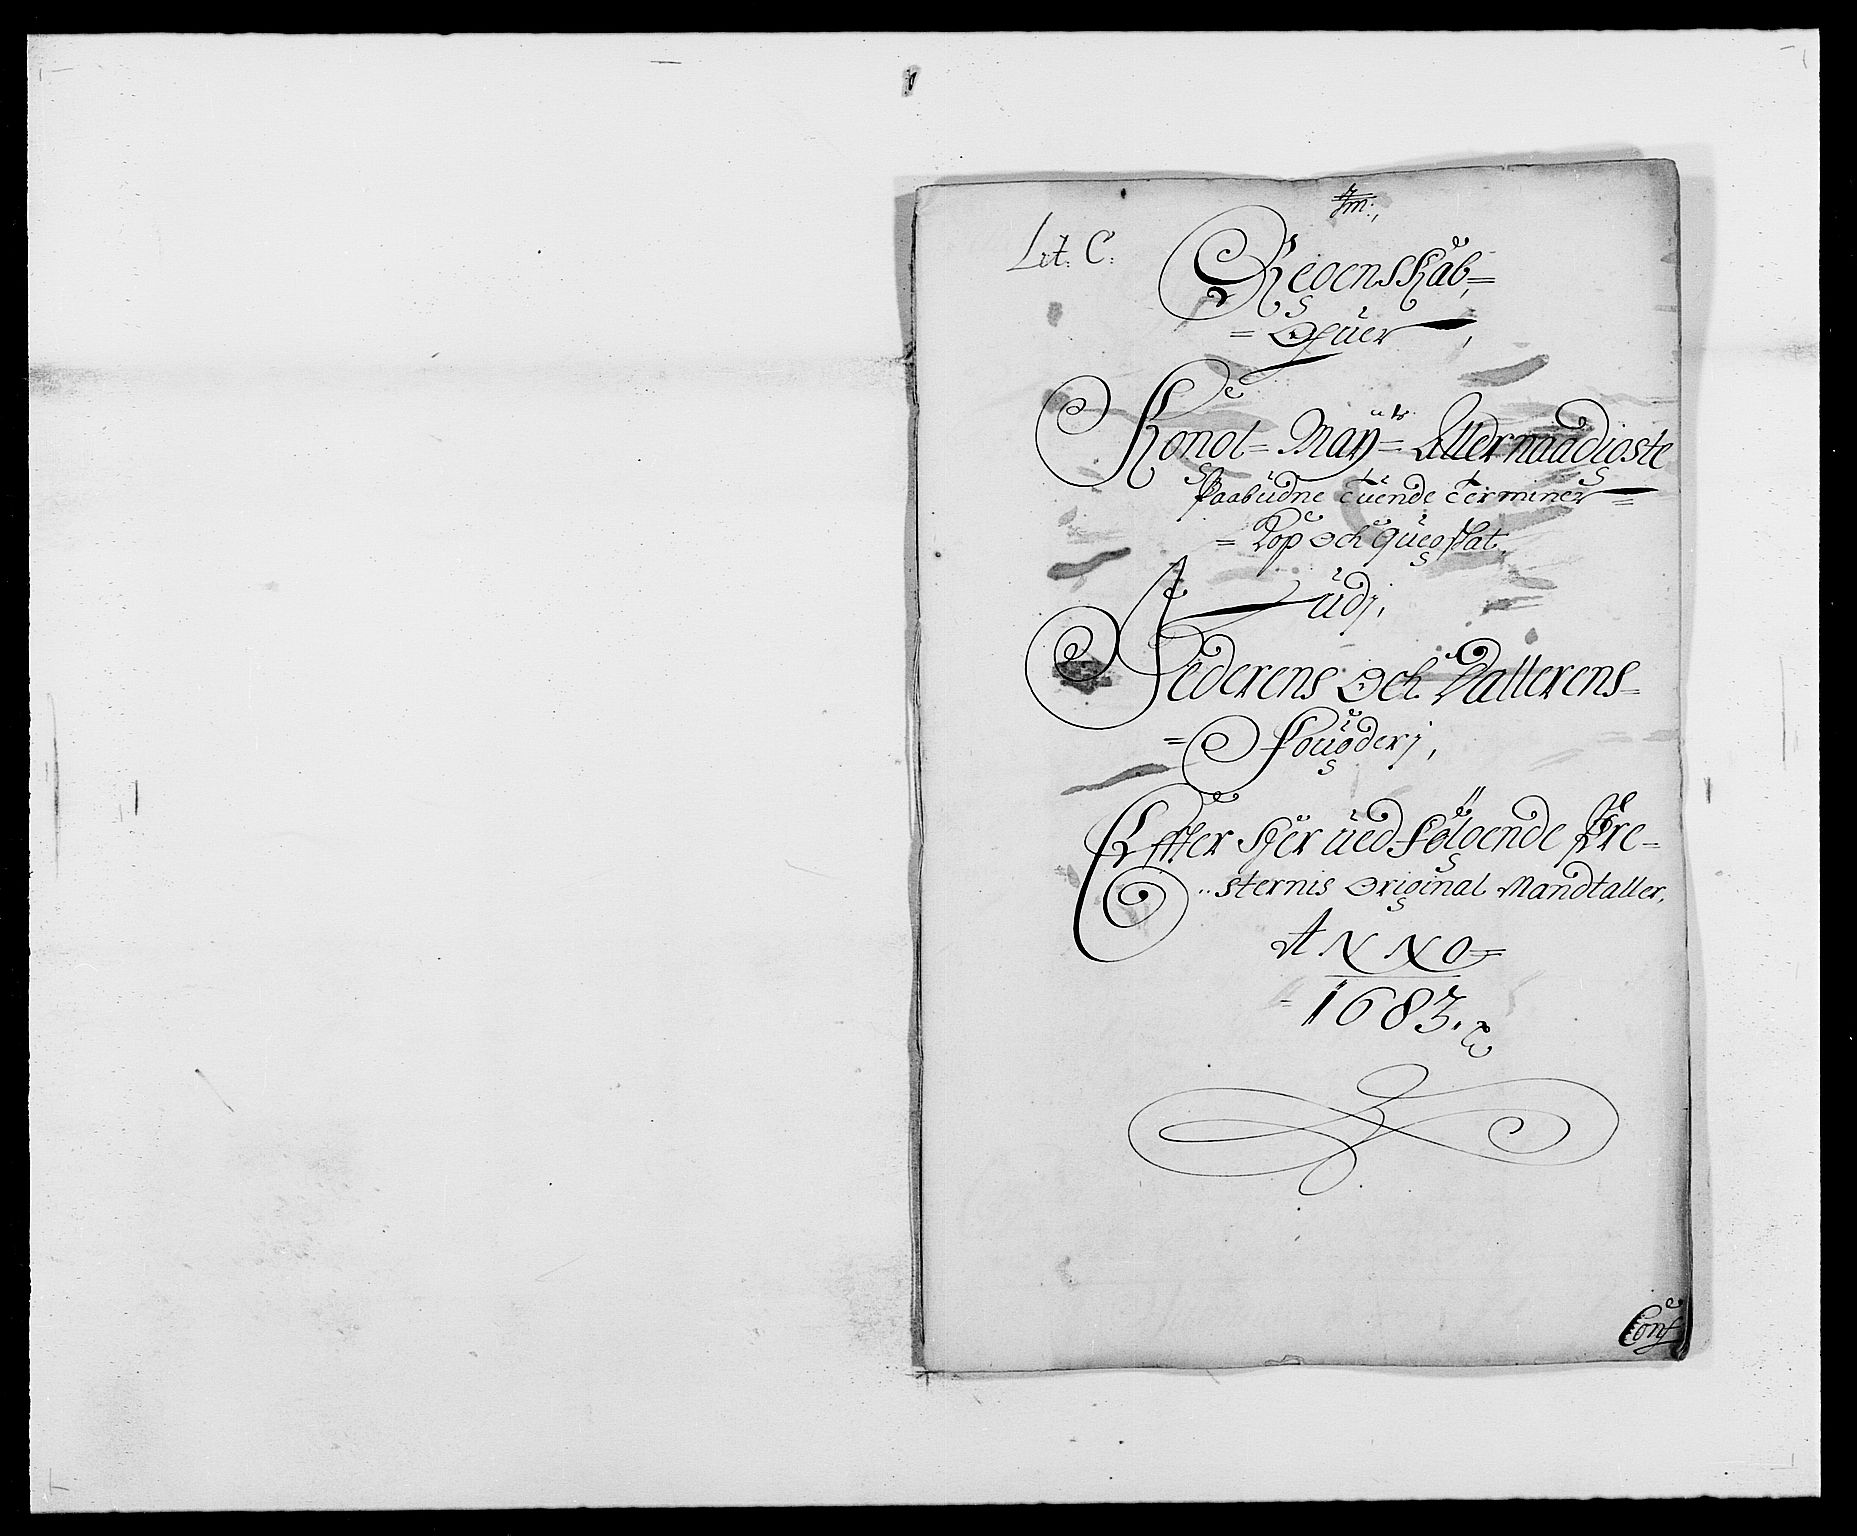 Lit. C.
Regenskab,=
= Ofuer,
Kongl= May= Allernaadigste
Paabüdne tuende terminer =
= Kop och Queg skat,
Üdj,
Jederens och Dallerens=
= Fougderj,
Effter Her ued følgende Pre=
sternis Original Mandtaller,
ANNO=
= 1683.
Conf